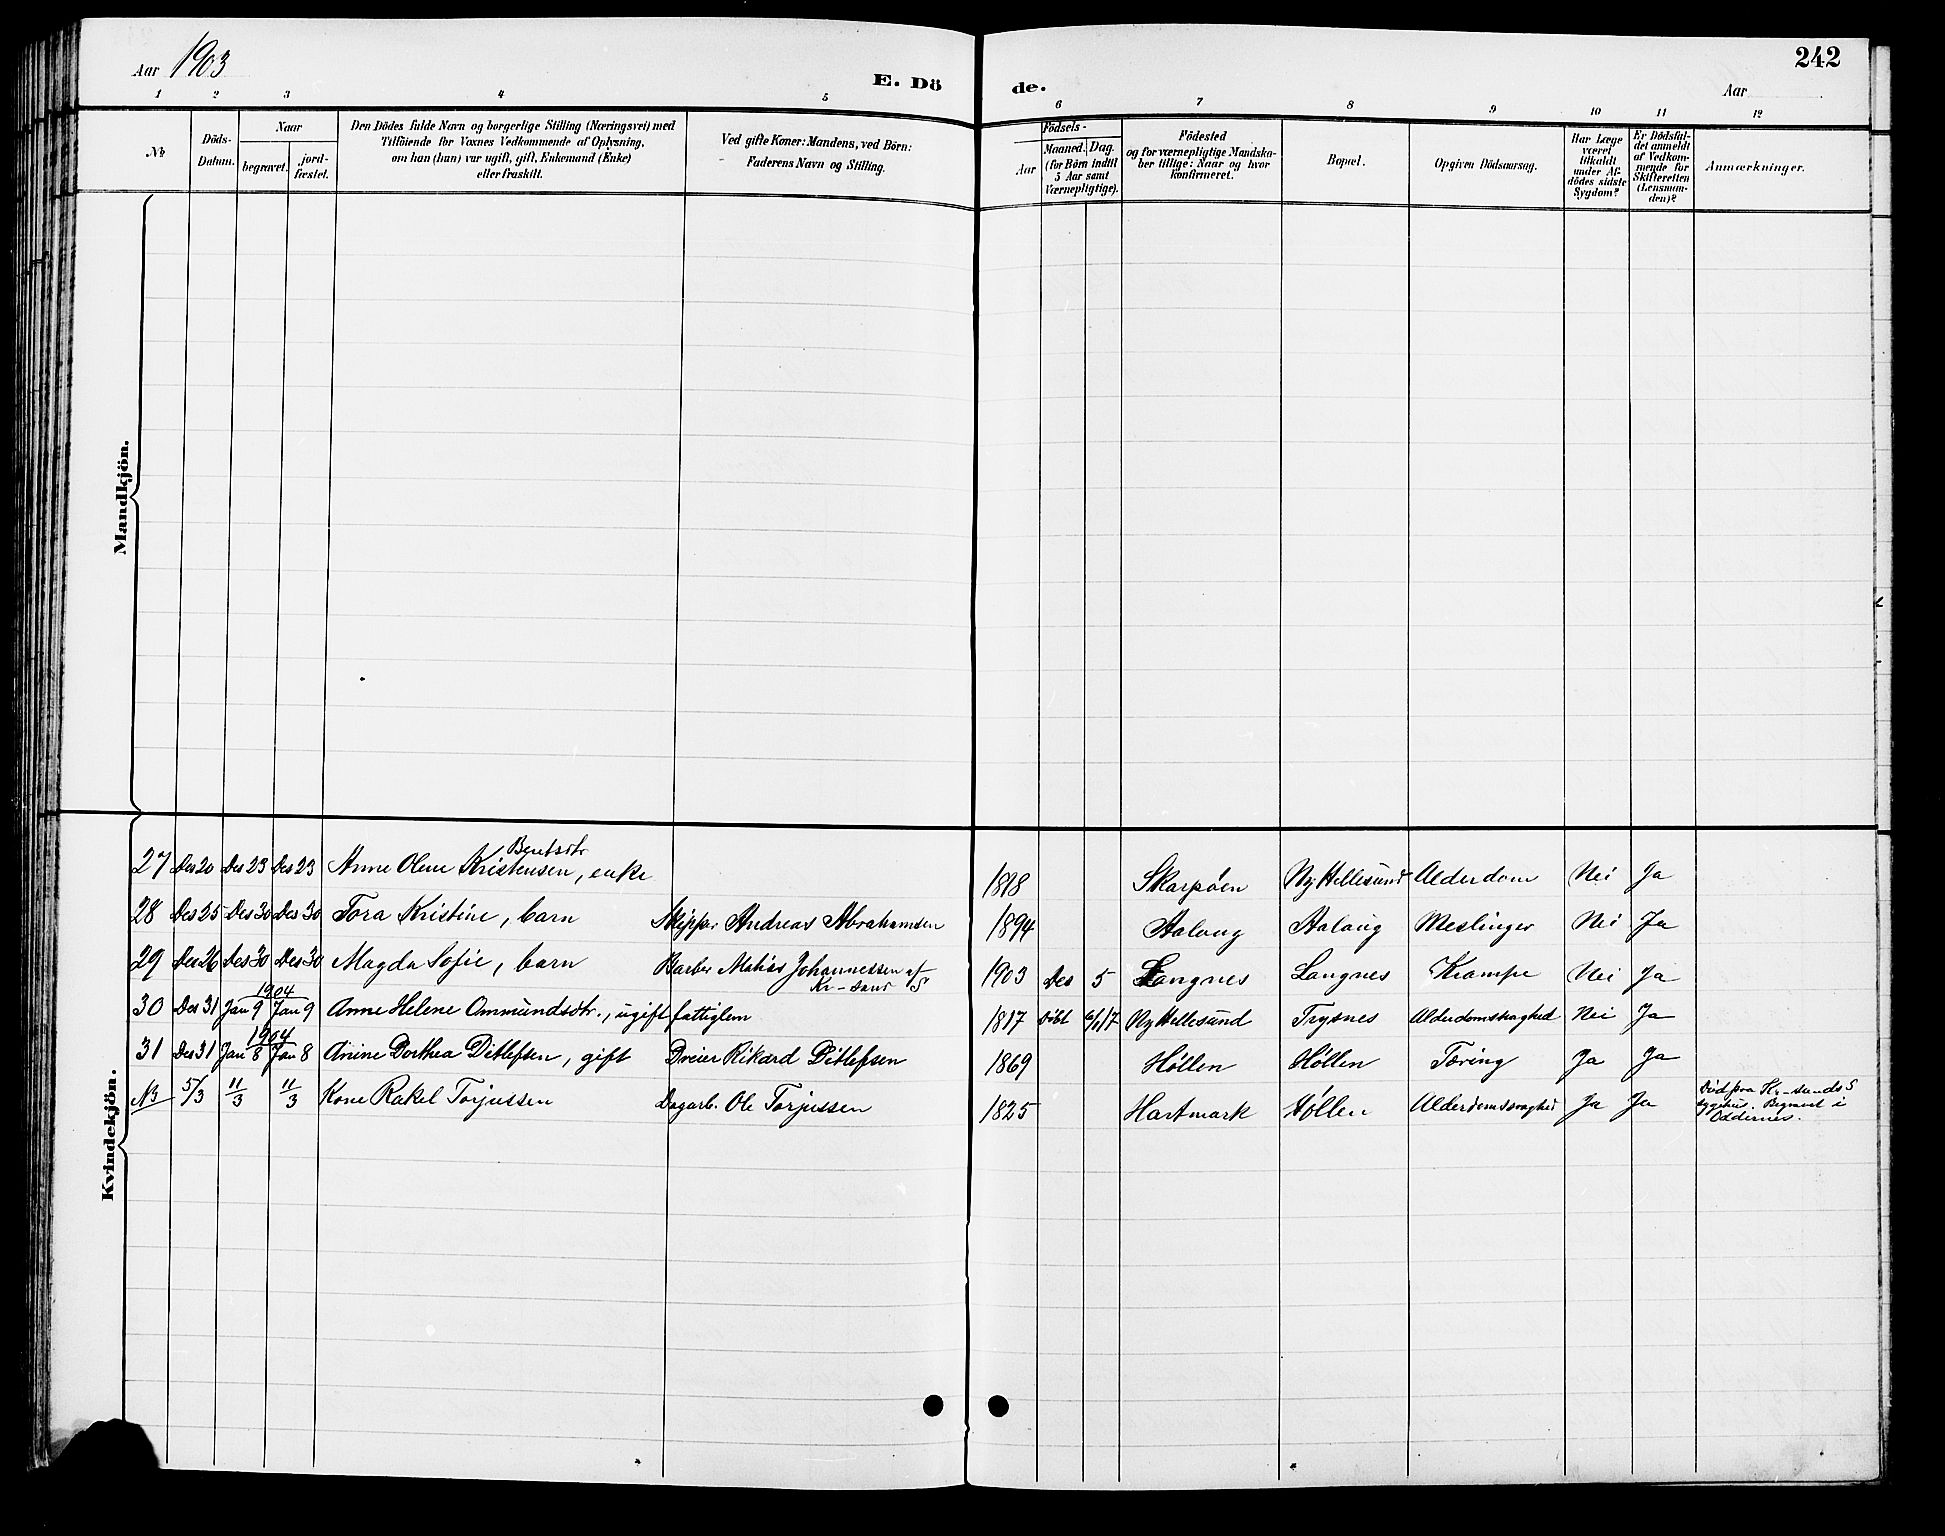 Aar 1903
E. Dö
de.
242
Aar
1 2 3 4 5 6 7 8 9 10 11 12
No
Döds-
Datum.
Naar
begravet.
jord-
fæstet.
Den Dödes fulde Navn og borgerlige Stilling (Næringsvei) med
Tilföiende for Voxnes Vedkommende af Oplysning,
om han (hun) var ugift, gift, Enkemand (Enke)
eller fraskilt.
Ved gifte Koner: Mandens, ved Börn:
Faderens Navn og Stilling.
Födsels-
Aar
Maaned. Dag.
(for Börn indtil
5 Aar samt
Værnepligtige).
Födested
og for værnepligtige Mandska-
ber tillige: Naar og hvor
konfirmeret.
Bopæl.
Opgiven Dödsaarsag.
Har Læge
været
tilkaldt
under Af-
dödes sidste
Sygdom?
Er Dödsfal-
det anmeldt
af Vedkom-
mende for
Skifteretten
(Lensman-
den)?
Anmærkninger.
Mandkjön.
Kvindekjön.
Bentsdtr
27 Des 20 Des 23 Des 23 Anne Olene Kristensen, enke 1818 Skarpøen Ny Hellesund Alderdom Nei Ja
28 Des 25 Des 30 Des 30 Tora Kristine, barn Skipper Andreas Abrahamsen 1894 Aalaug Aalaug Meslinger Nei Ja
29 Des 26 Des 30 Des 30 Magda Sofie, barn Barber Matias Johannessen af 1903 Des 5 Langnes Langnes Krampe Nei Ja
Kr-sand S
1904
30 Des 31 Jan 9 Jan 9 Anne Helene Ommundsdtr., ugift fattiglem 1817 Døbt 6/1 17 Ny Hellesund Trysnes Alderdomssvaghed Nei Ja
1904
31 Des 31 Jan 8 Jan 8 Anine Dorthea Ditlefsen, gift Dreier Rikard Ditlefsen 1869 Høllen Høllen Tæring Ja Ja
N3 5/3 11/3 11/3 Kone Rakel Torjussen Dagarb. Ole Torjussen 1825 Hartmark Høllen Alderdomssvaghed Ja Ja
Død paa Kr-sands S
sygehus. Begravet i
Oddernes.